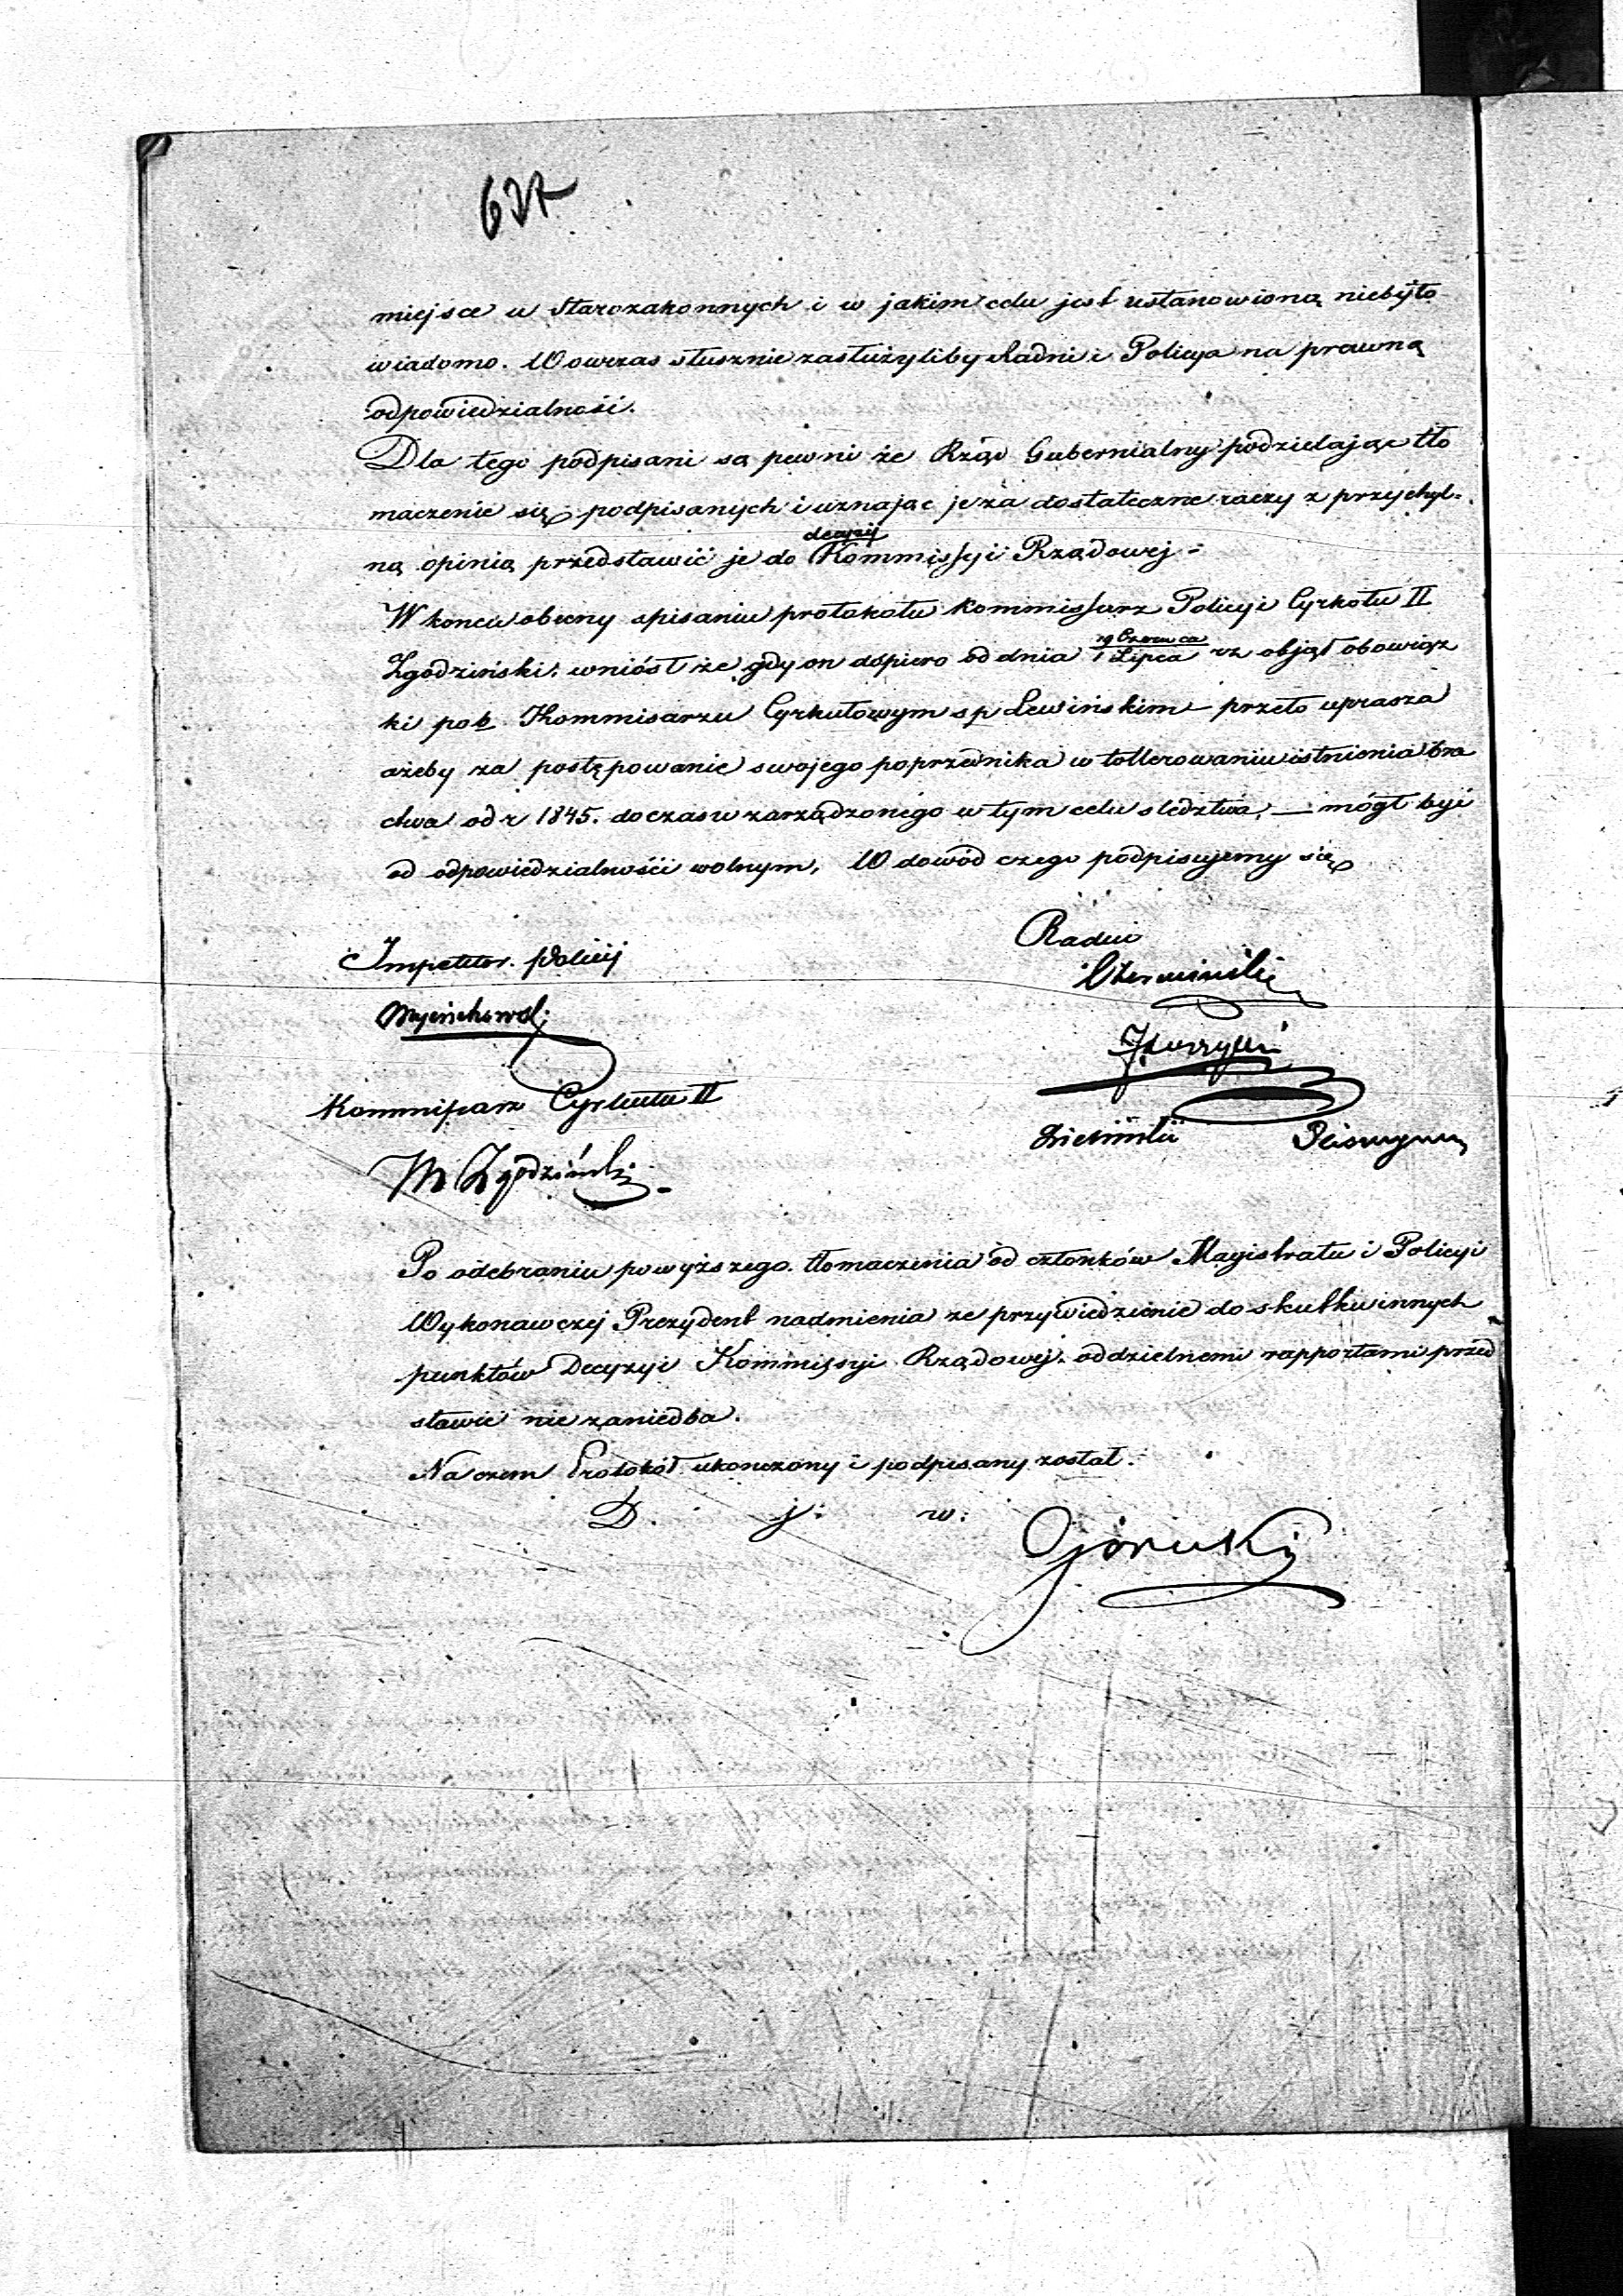 miejsce u Starozakonnych i w jakim celu jest ustanowioną niebyło
wiadomo. Wowczas słusznie zasłużyliby Radni i Policya na prawną
odpowiedzialność.
Dla tego podpisani są pewni że Rząd Gubernialny podzielając tło
maczenie się podpisanych i uznając je za dostateczne raczy z przychyl=
ną opinią przedstawić je do decyzij Kommissyi Rządowej =
W koncu obecny spisaniu protokołu Kommissarz Policyi Cyrkułu II
Zgodziński, wniósł że gdy on dopiero od dnia 19 Czerwca / 1 Lipca rz objął obowiąz
ki po Kommisarzu Cyrkułowym sp Lewińskim – przeto uprasza
ażeby za postępowanie swojego poprzednika w tollerowaniu istnienia bra
ctwa od r 1845. do czasu zarządzonego w tym celu sledztwa, — mógł być
od odpowiedzialności wolnym, W dowód czego podpisujemy się
Radni
Inspektor Policij
Wojciechowski
Kommissarz Cyrkułu II
M Zgodziński
Po odebraniu powyższego tłomaczenia od członków Magistratu i Policyi
Wykonawczej Prezydent nadmienia ze przywiedzienie do skutku innych
punktów Decyzyi Kommissyi Rządowej oddzielnemi rapportami przed
stawić nie zaniedba.
Na czem Protokół ukonczony i podpisany został.
D. j. w.